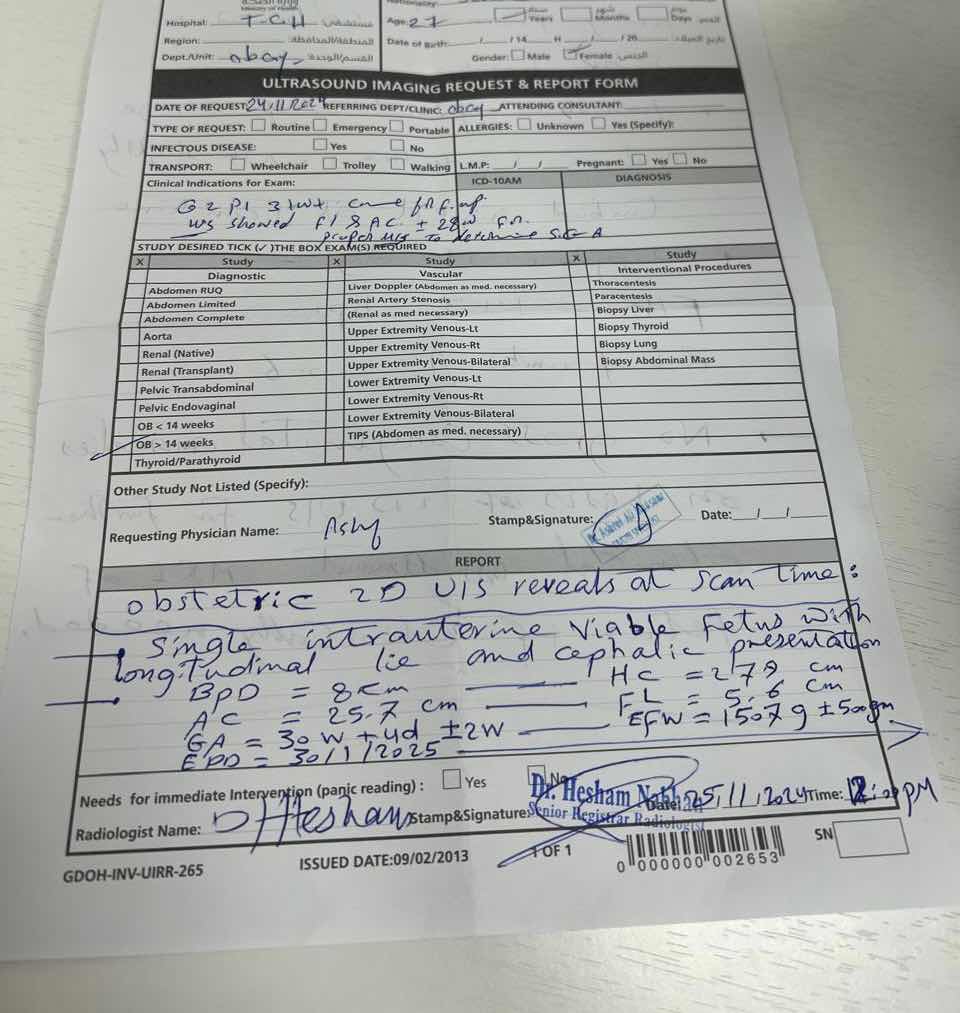 Nationality:
Hospital: T.C.H مستشفى
Age: 27 Years Months Days
Region: المنطقة/المحافظة
Date of Birth: / /14 H / /20
Dept./Unit: obgy القسم/الوحدة
Gender: Male Female الجنس
ULTRASOUND IMAGING REQUEST & REPORT FORM
DATE OF REQUEST: 24/11/2024 REFERRING DEPT/CLINIC: obgy ATTENDING CONSULTANT:
TYPE OF REQUEST: Routine Emergency Portable ALLERGIES: Unknown Yes (Specify):
INFECTOUS DISEASE: Yes No
TRANSPORT: Wheelchair Trolley Walking L.M.P: / / Pregnant: Yes No
Clinical Indications for Exam: ICD-10AM DIAGNOSIS
G2 P1 31wt came for F.up
U/S showed Fl & AC ± 28w F.n.
proper U/S to determine
STUDY DESIRED TICK (✓) THE BOX EXAM(S) REQUIRED
X Study X Study X Study
Diagnostic Vascular Interventional Procedures
Abdomen RUQ Liver Doppler (Abdomen as med. necessary) Thoracentesis
Abdomen Limited Renal Artery Stenosis Paracentesis
Abdomen Complete (Renal as med necessary) Biopsy Liver
Aorta Upper Extremity Venous-Lt Biopsy Thyroid
Renal (Native) Upper Extremity Venous-Rt Biopsy Lung
Renal (Transplant) Upper Extremity Venous-Bilateral Biopsy Abdominal Mass
Pelvic Transabdominal Lower Extremity Venous-Lt
Pelvic Endovaginal Lower Extremity Venous-Rt
OB < 14 weeks Lower Extremity Venous-Bilateral
OB > 14 weeks TIPS (Abdomen as med. necessary)
Thyroid/Parathyroid
Other Study Not Listed (Specify):
Requesting Physician Name: Stamp&Signature: Date: / /
REPORT
obstetric 2D U/S reveals at scan time:
Single intrauterine viable Fetus with
longitudinal lie and cephalic presentation
BPD = 8cm HC = 279 cm
AC = 25.7 cm FL = 5.6 cm
GA = 30W + 4d ±2W EFW = 1507g ±500gm
EDD = 30/1/2025
Needs for immediate Intervention (panic reading) : Yes No
Radiologist Name: Dr Hesham Stamp&Signature: Dr. Hesham Date: 25/11/2024 Time: PM
Senior Registrar Radiologist
GDOH-INV-UIRR-265 ISSUED DATE:09/02/2013 1 OF 1 0 000000 002653 SN